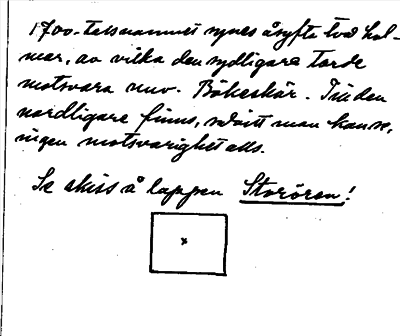 1700-talsnamnet synes åsyfta två hol-
mar, av vilka den sydligare torde
motsvara nuv. Bökeskär. Till den
nordligare finns, såvitt man kan se,
ingen motsvarighet alls.
Se skiss å lappen Storören!